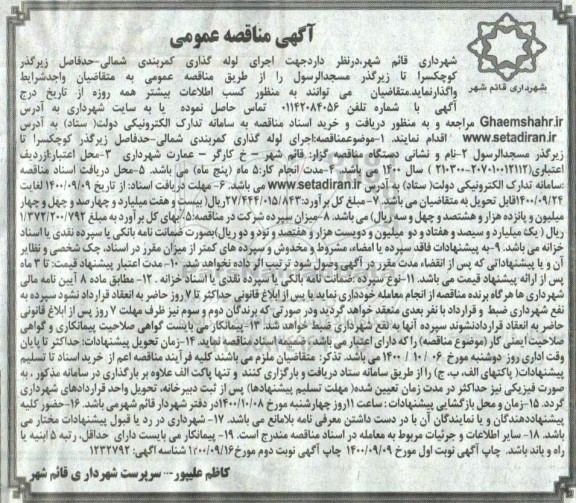 آگهی مناقصه عمومی
شهرداری قائم شهر
شهرداری قائم شهر،درنظر داردجهت اجرای لوله گذاری کمربندی شمالی-حدفاصل زیرگذر
کوچکسرا تا زیرگذر مسجدالرسول را از طریق مناقصه عمومی به متقاضیان واجدشرایط
واگذارنماید.متقاضیان می توانند به منظور کسب اطلاعات بیشتر همه روزه از تاریخ درج
آگهی با شماره تلفن ۰۱۱۴۲۰۸۴۰۵۶ تماس حاصل نموده یا به سایت شهرداری به آدرس
Ghaemshahr.ir مراجعه و به منظور دریافت و خرید اسناد مناقصه به سامانه تدارک الکترونیکی دولت( ستاد) به آدرس
www.setadiran.ir اقدام نمایند. ۱-موضوعمناقصه:اجرای لوله گذاری کمربندی شمالی-حدفاصل زیرگذر کوچکسرا تا
زیرگذر مسجدالرسول ۲-نام و نشانی دستگاه مناقصه گزار: قائم شهر – خ کارگر – عمارت شهرداری ۳-محل اعتبار:ازردیف
اعتباری(۲۰۷۰۱۰۰۱۲۱۱۲-۲۱-۳۰۰ ) سال ۱۴۰۰ می باشد. ۴-مدت انجام کار:۵ ماه (پنج ماه) می باشد. ۵-محل دریافت اسناد مناقصه
:سامانه تدارک الکترونیکی دولت( ستاد) به آدرس www.setadiran.ir می باشد. ۶- مهلت دریافت اسناد: از تاریخ ۱۴۰۰/۰۹/۰۹ لغایت
۱۴۰۰/۰۹/۲۴قابل تحویل به متقاضیان می باشد. ۷- مبلغ کل برآورد:۲۷/۴۴۴/۰۱۵/۸۴۳ریال( بیست و هفت میلیارد و چهارصد و چهل و چهار
میلیون و پانزده هزار و هشتصد و چهل و سه ریال) می باشد. ۸-میزان سپرده شرکت در مناقصه:۵٪بهای کل برآورد به مبلغ ۱/۳۷۲/۲۰۰/۷۹۲
ریال ( یک میلیارد و سیصد و هفتاد و دو میلیون و دویست هزار و هفتصد و نود و دو ریال)بصورت ضمانت نامه بانکی یا سپرده نقدی یا اسناد
خزانه می باشد. ۹-به پیشنهادات فاقد سپرده یا امضاء، مشروط و مخدوش و سپرده های کمتر از میزان مقرر در اسناد، چک شخصی و نظایر
آن و یا پیشنهاداتی که پس از انقضاء مدت مقرر در آگهی وصول شود ترتیب اثر داده نخواهد شد. ۱۰-مدت اعتبار پیشنهاد قیمت: تا ۳ ماه
پس از ارائه پیشنهاد قیمت می باشد. ۱۱-نوع سپرده :ضمانت نامه بانکی یا سپرده نقدی یا اسناد خزانه . ۱۲- مطابق ماده ۸ آیین نامه مالی
شهرداری ها هرگاه برنده مناقصه از انجام معامله خودداری نماید یا پس از ابلاغ قانونی حداکثر تا ۷ روز حاضر به انعقاد قرارداد نشود سپرده به
نفع شهرداری ضبط و قرارداد با نفر بعدی منعقد خواهد گردید ودر صورتی که برندگان دوم و سوم نیز ظرف مهلت ۷ روز پس از ابلاغ قانونی
حاضر به انعقاد قراردادنشوند سپرده آنها به نفع شهرداری ضبط خواهد شد. ۱۳-پیمانکار می بایست گواهی صلاحیت پیمانکاری و گواهی
صلاحیت ایمنی کار (موضوع مناقصه) را که دارای اعتبار می باشد، ضمیمه اسناد مناقصه نماید. ۱۴-زمان تحویل پیشنهادات: حداکثر تا پایان
وقت اداری روز دوشنبه مورخ ۰۶ / ۱۰ / ۱۴۰۰ می باشد. تذکر: متقاضیان ملزم می باشند کلیه فرآیند مناقصه اعم از خرید اسناد تا تسلیم
پیشنهادات( پاکتهای الف، ب، ج) را از طریق سامانه ستاد دریافت و بارگزاری کنند و تنها پاکت الف علاوه بر بارگذاری در سامانه مذکور ، به
صورت فیزیکی نیز حداکثر در مدت زمان تعیین شده( مهلت تسلیم پیشنهادها) پس از ثبت دبیرخانه، تحویل واحد قراردادهای شهرداری
گردد. ۱۵-زمان و محل بازگشایی پیشنهادات : ساعت ۱۱روز چهارشنبه مورخ ۱۴۰۰/۱۰/۰۸در دفتر شهردار قائم شهرمی باشد. ۱۶-حضور کلیه
پیشنهاددهندگان و یا نمایندگان آن با در دست داشتن معرفی نامه بلامانع می باشد. ۱۷- شهرداری در رد یا قبول پیشنهادات مختار می
باشد. ۱۸- سایر اطلاعات و جزئیات مربوط به معامله در اسناد مناقصه مندرج است. ۱۹- پیمانکار می بایست دارای حداقل، رتبه ۵ ابنیه یا
راه و باند باشد. چاپ آگهی نوبت اول مورخ ۱۴۰۰/۰۹/۰۹ چاپ آگهی نوبت دوم مورخ ۱۴۰۰/۰۹/۱۶ شناسه آگهی: ۱۲۳۲۷۹۲
کاظم علیپور--- سرپرست شهرداری قائم شهر